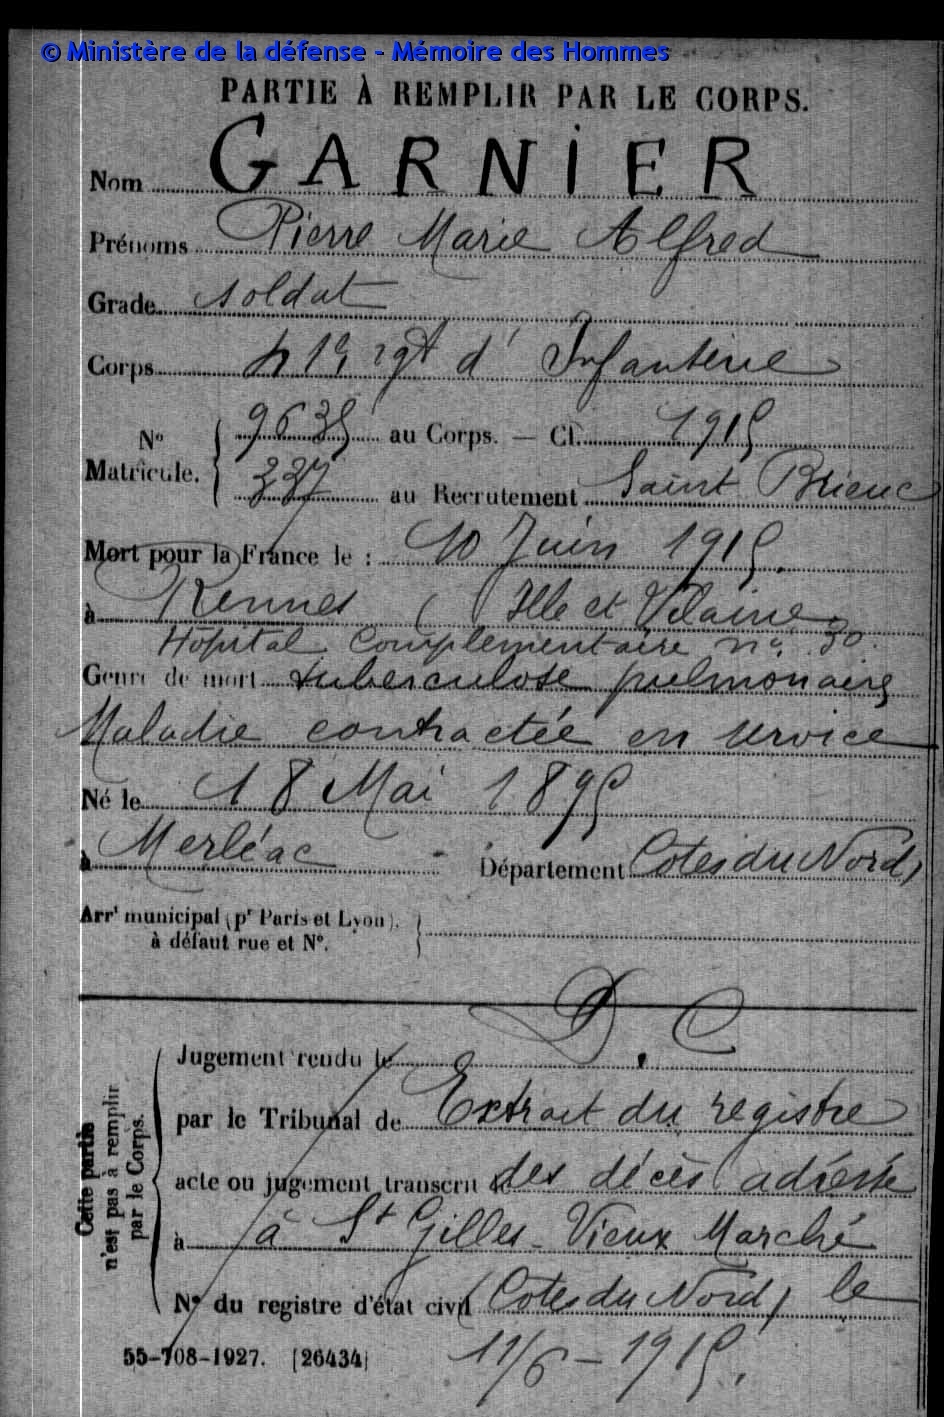 © Ministère de la défense - Mémoire des Hommes
PARTIE À REMPLIR PAR LE CORPS.
Nom GARNIER
Prénoms Pierre Marie Alfred
Grade soldat
Corps 41e rgt d'Infanterie
No Matricule. 9635 au Corps. — Cl. 1915
337 au Recrutement Saint Brieuc
Mort pour la France le : 10 Juin 1915.
à Rennes (Ille et Vilaine)
Hôpital Complémentaire no. 30.
Genre de mort tuberculose pulmonaire
Maladie contractée en service
Né le 18 Mai 1895
à Merléac - Département Cotes du Nord
Arrt municipal (pr Paris et Lyon),
à défaut rue et No.
D. C
Cette partie n'est pas à remplir par le Corps.
Jugement rendu le
par le Tribunal de Extrait du registre
acte ou jugement transcrit le des décès adressé
à à St Gilles-Vieux Marché
No du registre d'état civil (Cotes du Nord) le
55-708-1927. [26434] 11/6-1915.